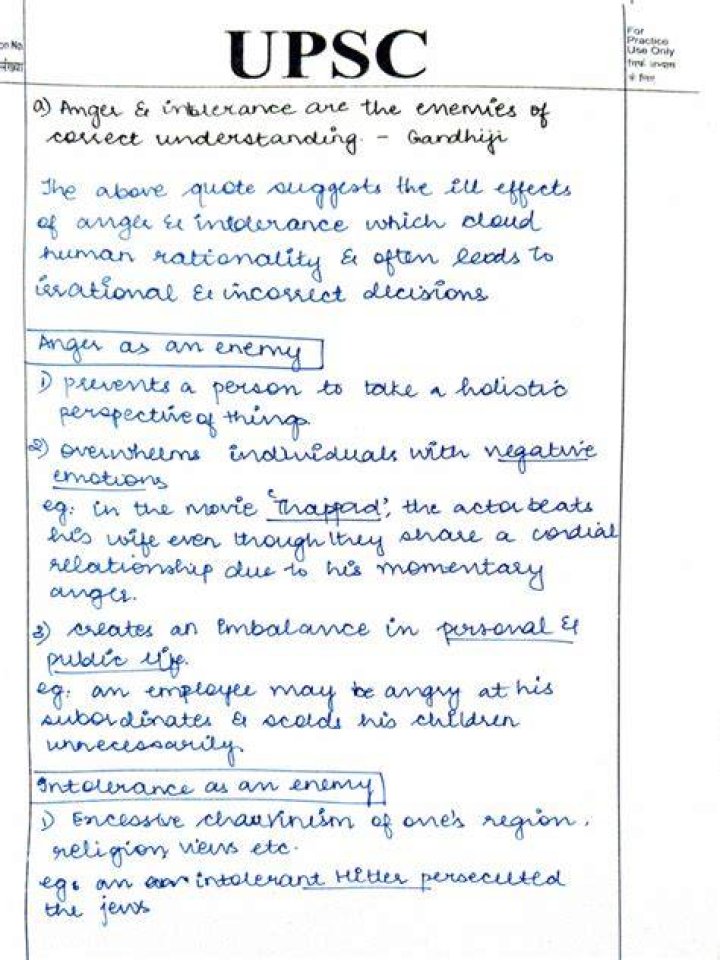 UPSC
on No.
For
Practice
Use Only
a) Anger & intolerance are the enemies of
correct understanding. - Gandhiji
The above quote suggests the ill effects
of anger & intolerance which cloud
human rationality & often leads to
irrational & incorrect decisions
Anger as an enemy
1) prevents a person to take a holistic
perspective of things.
2) overwhelms individuals with negative
emotions
eg: in the movie 'Thappad', the actor beats
his wife even though they share a cordial
relationship due to his momentary
anger.
3) creates an imbalance in personal &
public life.
eg: an employee may be angry at his
subordinates & scolds his children
unnecessarily.
Intolerance as an enemy
1) Excessive chauvinism of one's region,
religion, views etc.
eg: an intolerant Hitler persecuted
the jews